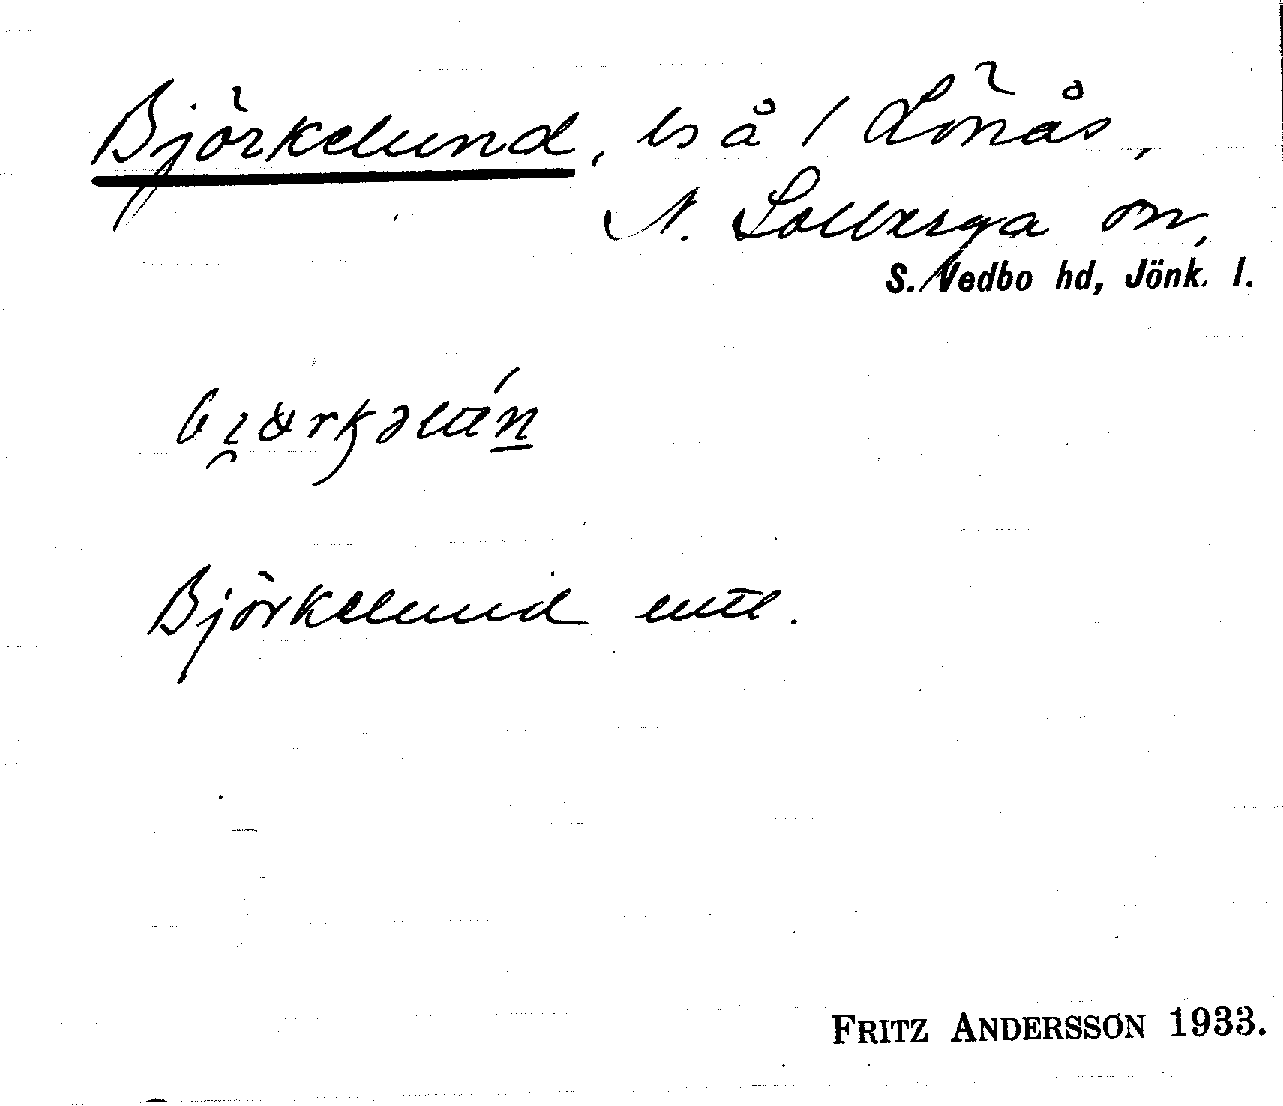 Björkelund, ls å 1 Lönås,
N. Solberga sn,
S. Vedbo hd, Jönk. l.
Björkelund
FRITZ ANDERSSON 1933.